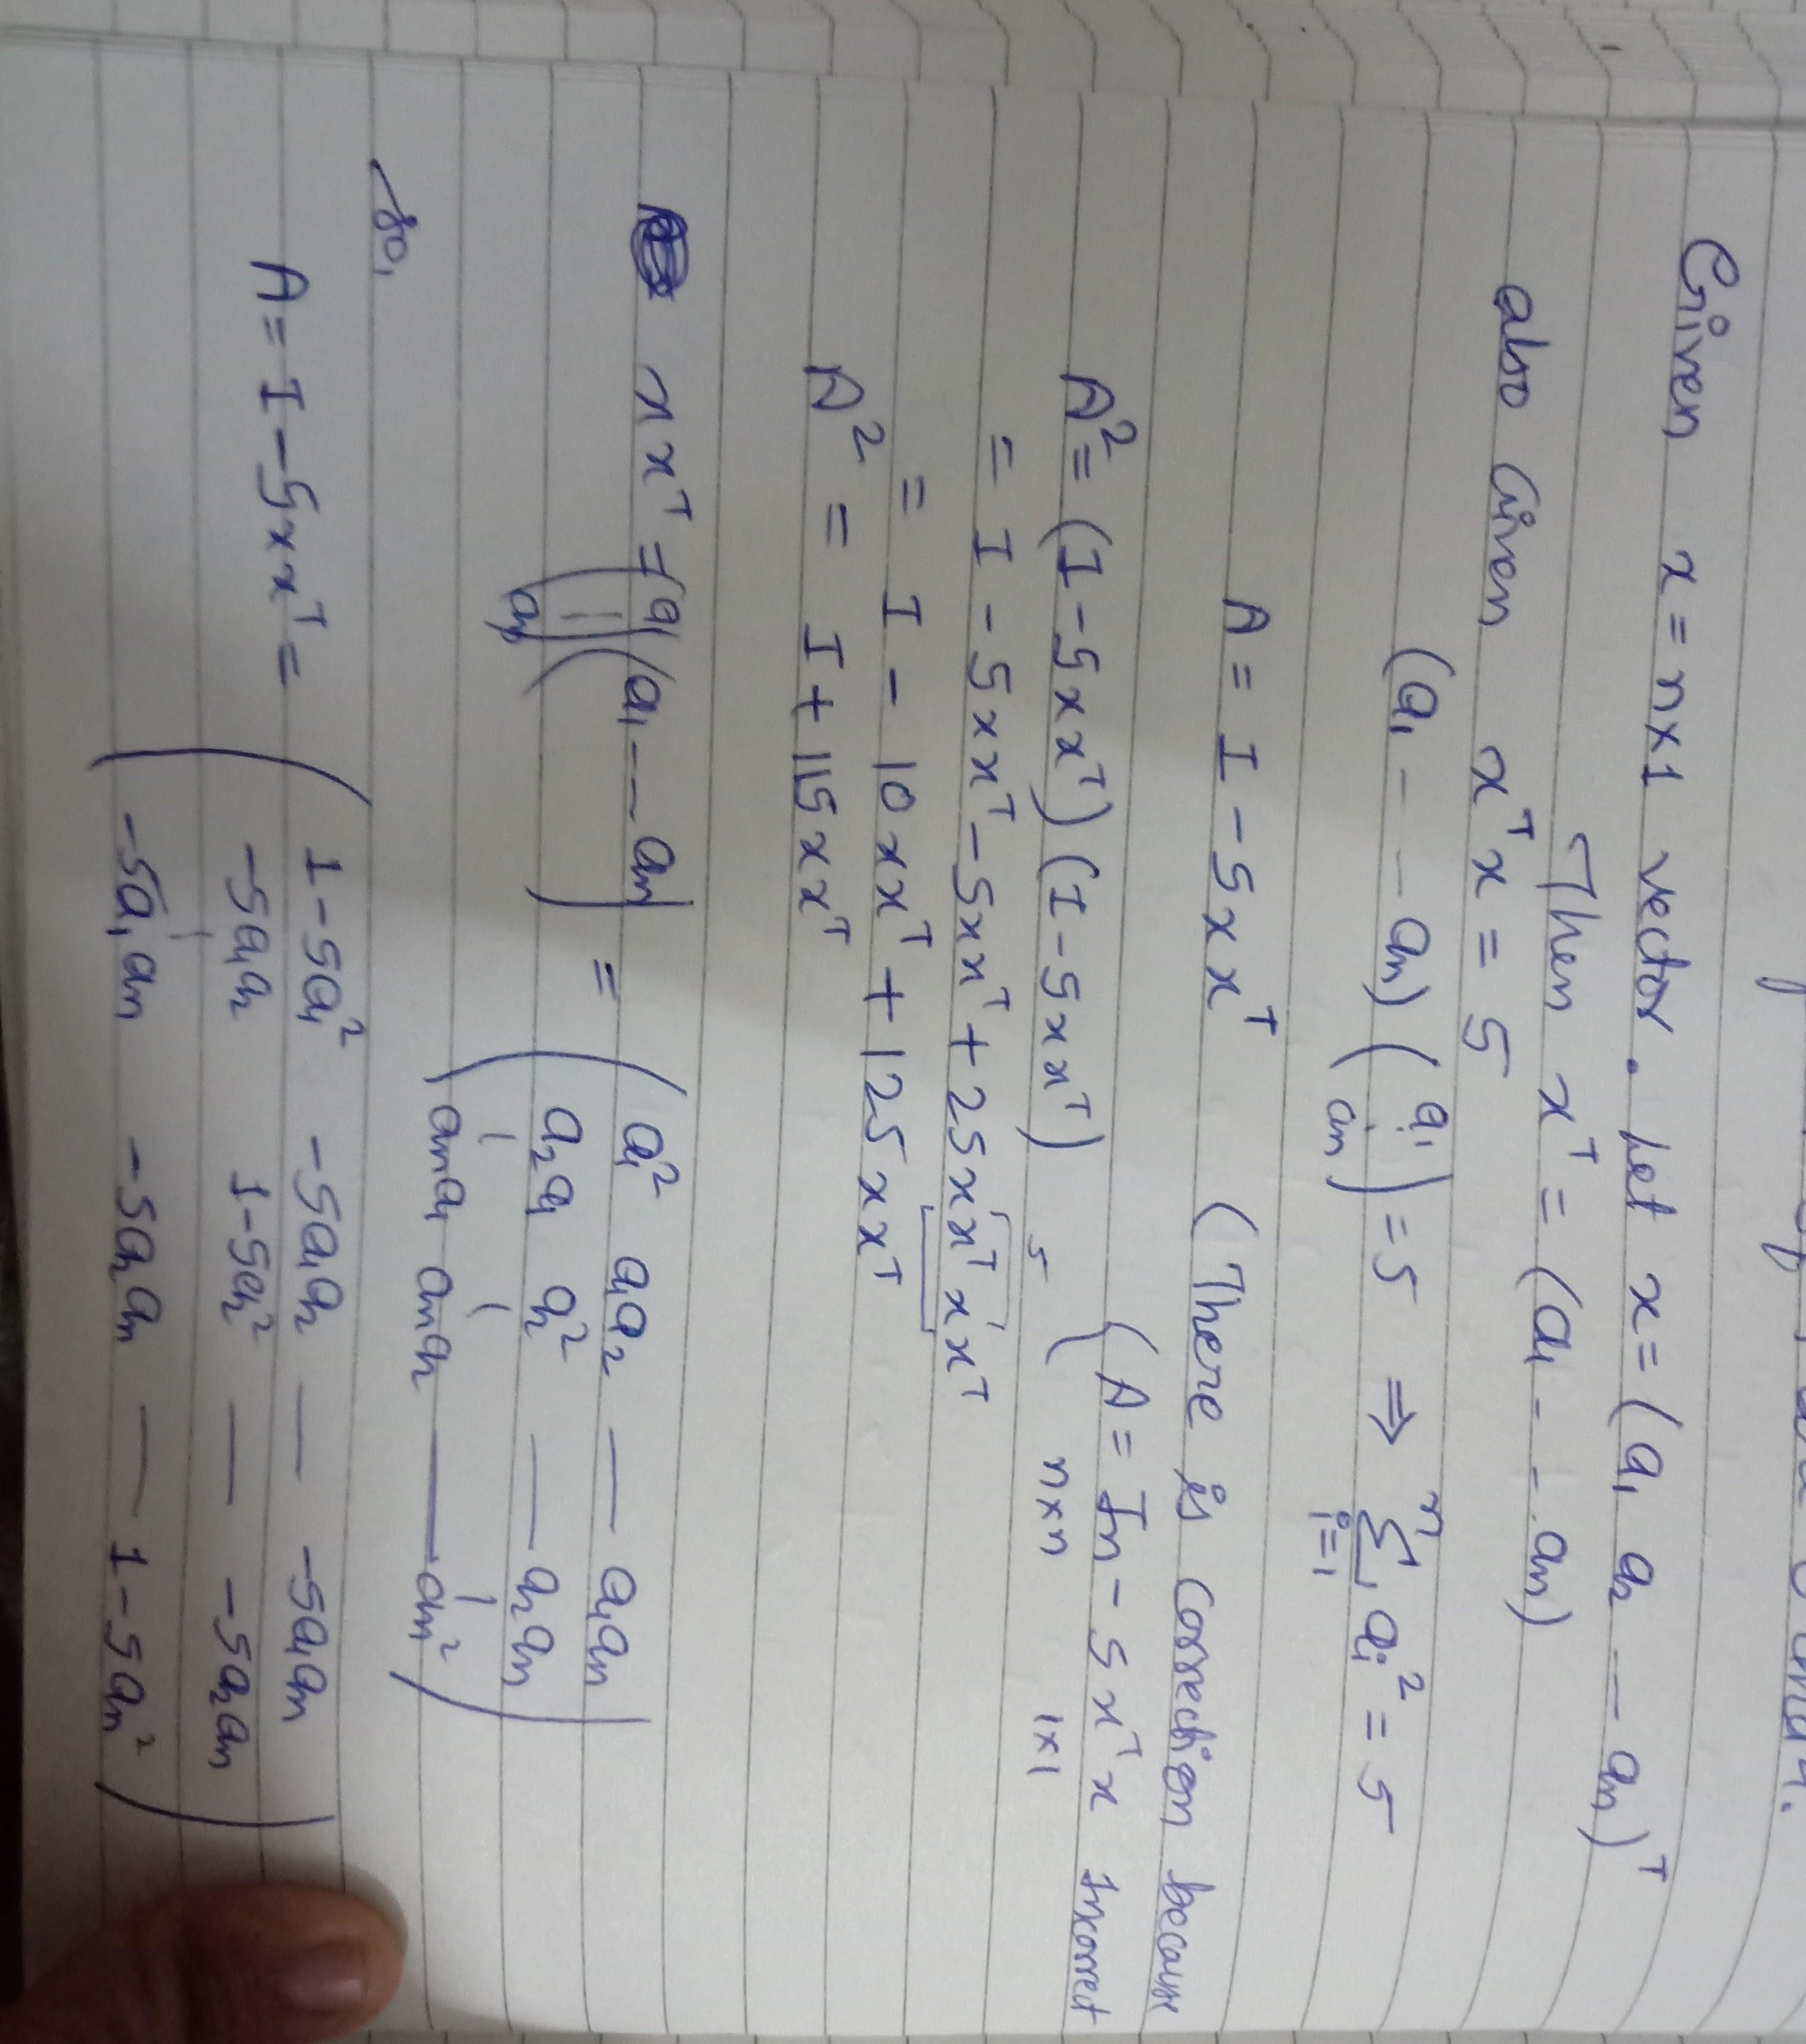 Given x = n×1 vector. Let x = (a₁ a₂ --- aₙ)ᵀ
Then xᵀ = (a₁ - - - aₙ)
also Given xᵀx = 5
(a₁ - - - aₙ) (a₁ : aₙ) = 5 ⇒ ⁿ∑ᵢ₌₁ aᵢ² = 5
A = I - 5xxᵀ (There is correction because
(A = Iₙ - 5xᵀx Incorrect
n×n 1×1
A² = (I - 5xxᵀ) (I - 5xxᵀ) 5
= I - 5xxᵀ - 5xxᵀ + 25xxᵀxxᵀ
= I - 10xxᵀ + 125xxᵀ
A² = I + 115xxᵀ
xxᵀ = (a₁ | aₙ) (a₁ --- aₙ) = ( a₁² a₁a₂ — a₁aₙ
a₂a₁ a₂² — a₂aₙ
aₙa₁ aₙa₂ — aₙ² )
So,
A = I - 5xxᵀ = ( 1-5a₁² -5a₁a₂ — -5a₁aₙ
-5a₁a₂ 1-5a₂² — -5a₂aₙ
-5a₁aₙ -5a₂aₙ — 1-5aₙ² )